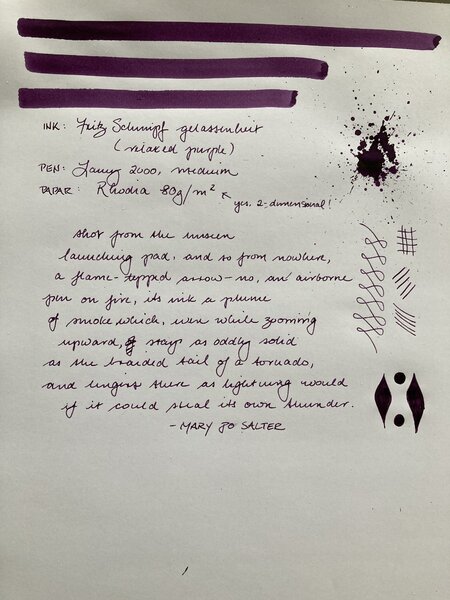 INK: Fritz Schimpf gelassenheit
(relaxed purple)
PEN: Lamy 2000, medium
PAPAR: Rhodia 80g/m² ↖ yes, 2-dimensional!
shot from the unseen
launching pad, and so from nowhere,
a flame-tipped arrow—no, an airborne
pen on fire, its ink a plume
of smoke which, even while zooming
upward, stays as oddly solid
as the braided tail of a tornado,
and lingers there as lightning would
if it could steal its own thunder.
- MARY JO SALTER